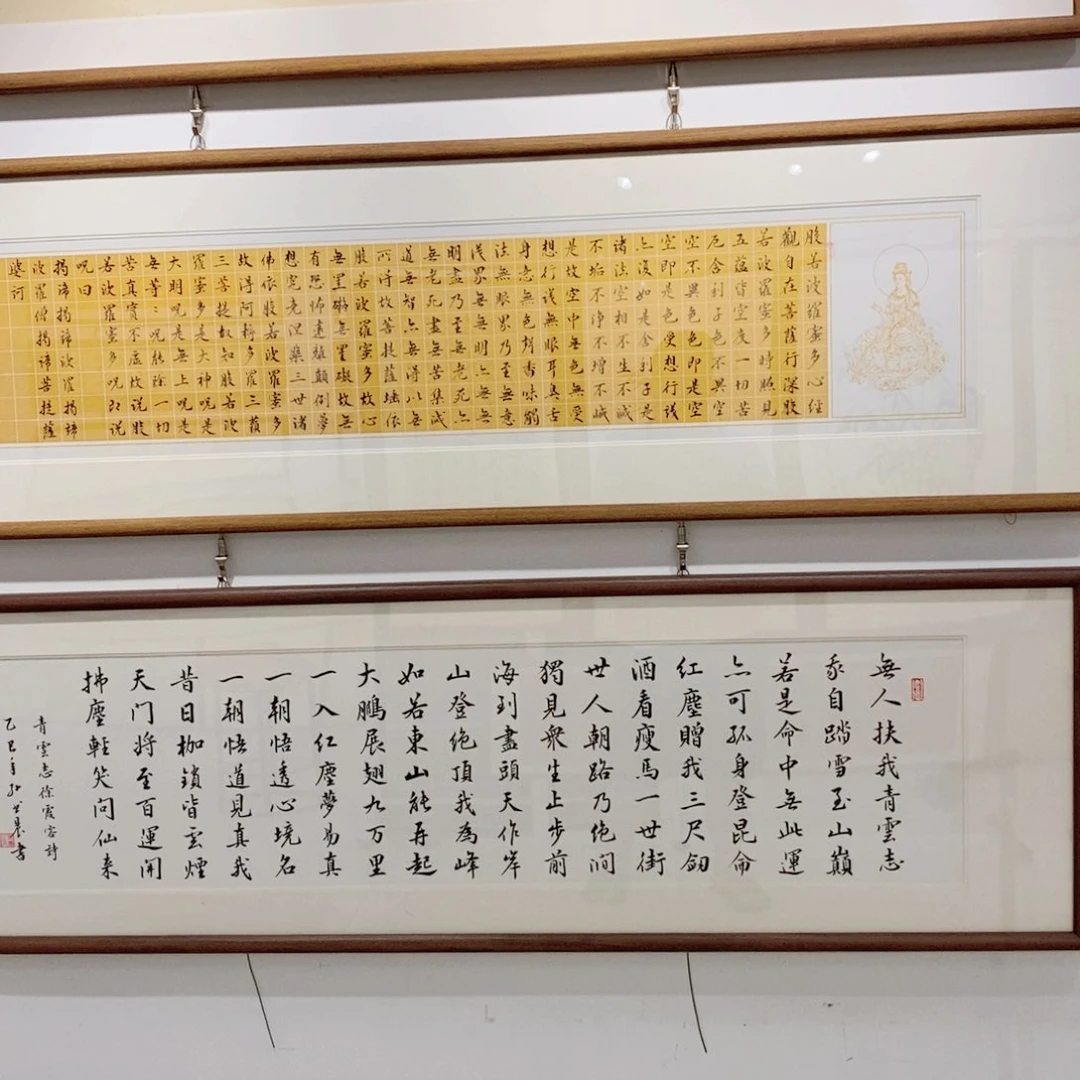 般若波羅蜜多心経
觀自在菩薩行深般
若波羅蜜多時照見
五蘊皆空度一切苦
厄舍利子色不異空
空不異色色即是空
空即是色受想行識
亦復如是舍利子是
諸法空相不生不滅
不垢不淨不增不減
是故空中無色無受
想行識無眼耳鼻舌
身意無色聲香味觸
法無眼界乃至無意
識界無無明亦無無
明盡乃至無老死亦
無老死盡無苦集滅
道無智亦無得以無
所得故菩提薩埵依
般若波羅蜜多故心
無罣礙無罣礙故無
有恐怖遠離顛倒夢
想究竟涅槃三世諸
佛依般若波羅蜜多
故得阿耨多羅三藐
三菩提故知般若波
羅蜜多是大神呪是
大明呪是無上呪是
無等：呪能除一切
苦真實不虛故說般
若波羅蜜多呪即說
呪曰
揭諦揭諦波羅揭諦
波羅僧揭諦菩提薩
婆訶
無人扶我青雲志
我自踏雪至山巔
若是命中無此運
亦可孤身登昆命
紅塵贈我三尺劒
酒看瘦馬一世街
世人朝路乃绝澗
獨見衆生止步前
海到盡頭天作岸
山登绝頂我為峰
如若東山能再起
大鵬展翅九万里
一入红塵夢易真
一朝悟透心境名
一朝悟道見真我
昔日枷鎖皆雲煙
天门将至百運開
拂塵輕笑问仙来
青雲志徐霞客詩
乙巳年 書